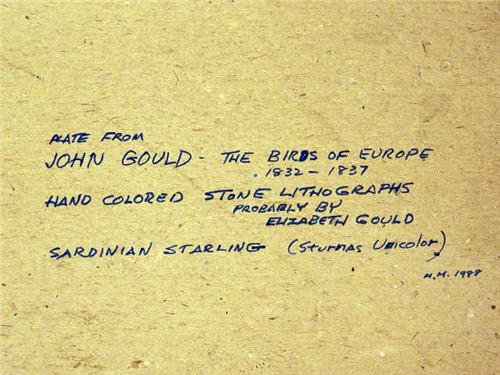 PLATE FROM
JOHN GOULD - THE BIRDS OF EUROPE
1832 - 1837
HAND COLORED STONE LITHOGRAPHS
PROBABLY BY
ELIZABETH GOULD
SARDINIAN STARLING (Sturnas Unicolor)
M.M. 1988